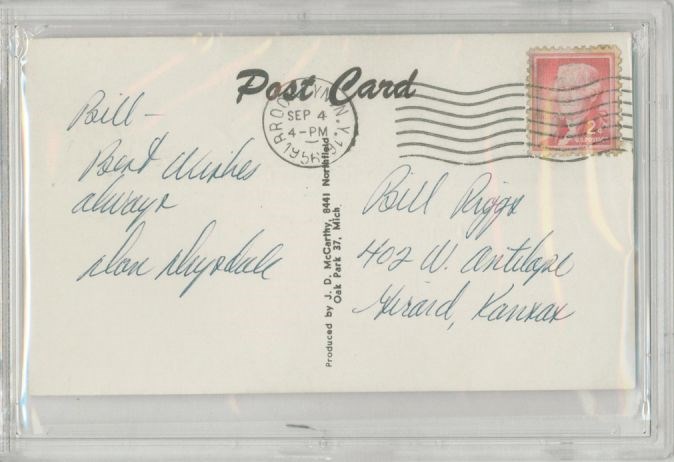 Post Card
BROOKLYN, N.Y.
SEP 4
4-PM
1956
2¢
U.S. POSTAGE
Bill –
Best Wishes
always
Don Drysdale
Produced by J. D. McCarthy, 8441 Northfield
Oak Park 37, Mich.
Bill Riggs
402 W. Antelope
Girard, Kansas